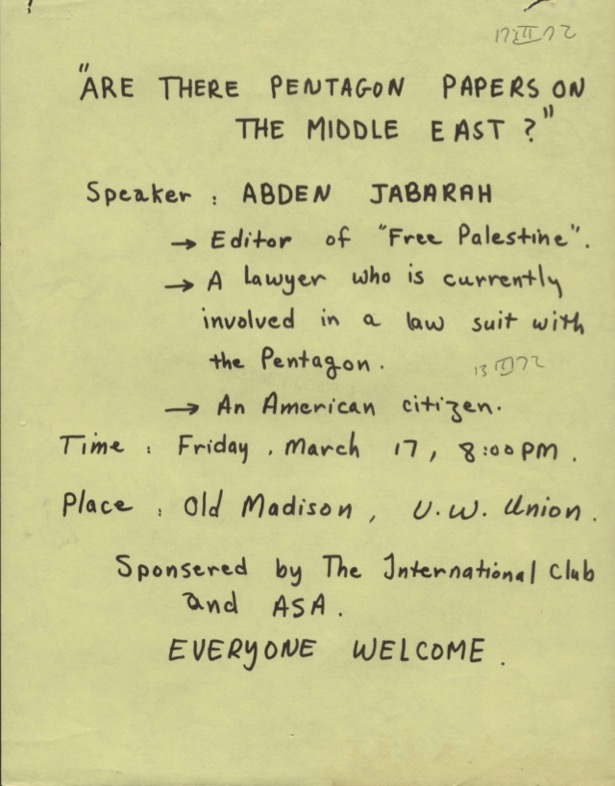 17 III 72
"ARE THERE PENTAGON PAPERS ON
THE MIDDLE EAST ?"
Speaker : ABDEN JABARAH
→ Editor of "Free Palestine".
→ A lawyer who is currently
involved in a law suit with
the Pentagon.
13 III 72
→ An American citizen.
Time : Friday , March 17 , 8:00 PM .
Place : Old Madison , U.W. Union .
Sponsered by The International Club
and ASA .
EVERYONE WELCOME .